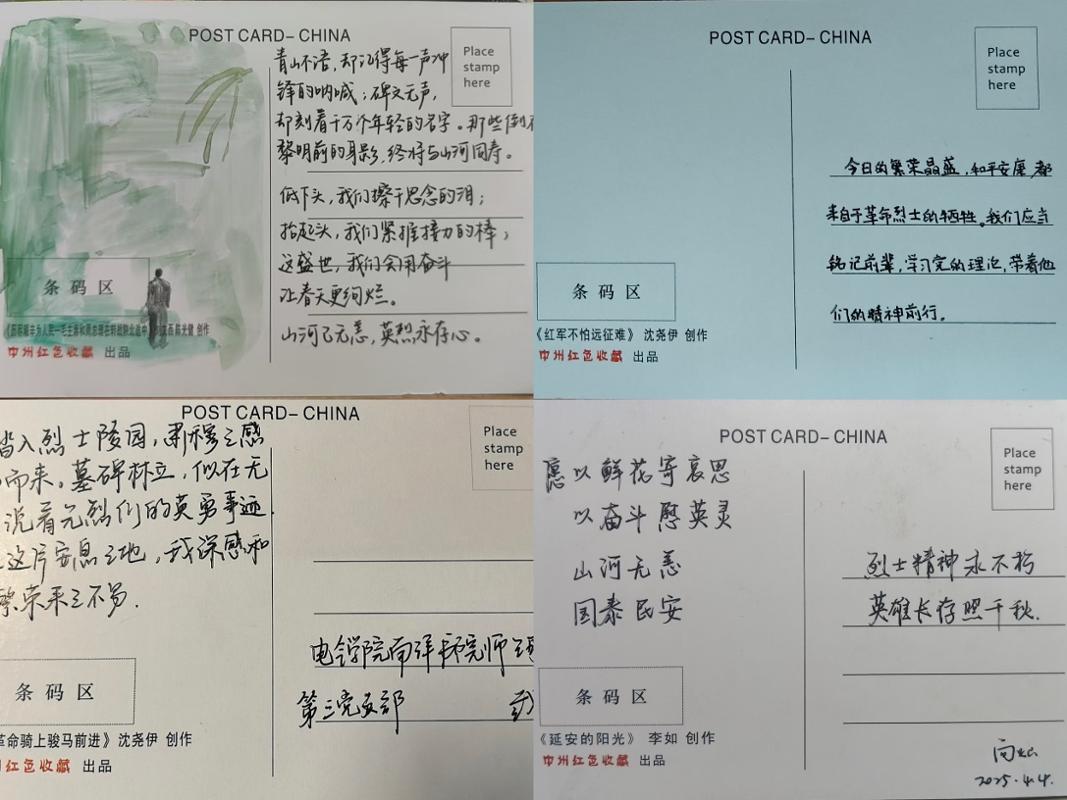 POST CARD–CHINA
Place
stamp
here
青山不语，却记得每一声冲
锋的呐喊；碑文无声，
却刻着千万个年轻的名字。那些倒在
黎明前的身影，终将与山河同寿。
低下头，我们擦干思念的泪；
抬起头，我们紧握接力的棒；
这盛世，我们会用奋斗
让春天更绚烂。
山河已无恙，英烈永存心。
条码区
创作
中州红色收藏 出品
POST CARD–CHINA
Place
stamp
here
今日的繁荣昌盛，和平安康，都
来自于革命烈士的牺牲。我们应当
铭记前辈，学习党的理论，带着他
们的精神前行。
条码区
《红军不怕远征难》 沈尧伊 创作
中州红色收藏 出品
POST CARD–CHINA
Place
stamp
here
踏入烈士陵园，肃穆之感
而来。墓碑林立，似在无
说着先烈们的英勇事迹.
这片安息之地，我深感和
繁荣来之不易.
条码区
革命骑上骏马前进》 沈尧伊 创作
州红色收藏 出品
第三党支部
POST CARD–CHINA
Place
stamp
here
愿以鲜花寄哀思
以奋斗慰英灵
山河无恙
国泰民安
烈士精神永不朽
英雄长存照千秋.
条码区
《延安的阳光》 李如 创作
中州红色收藏 出品
2025.4.4.